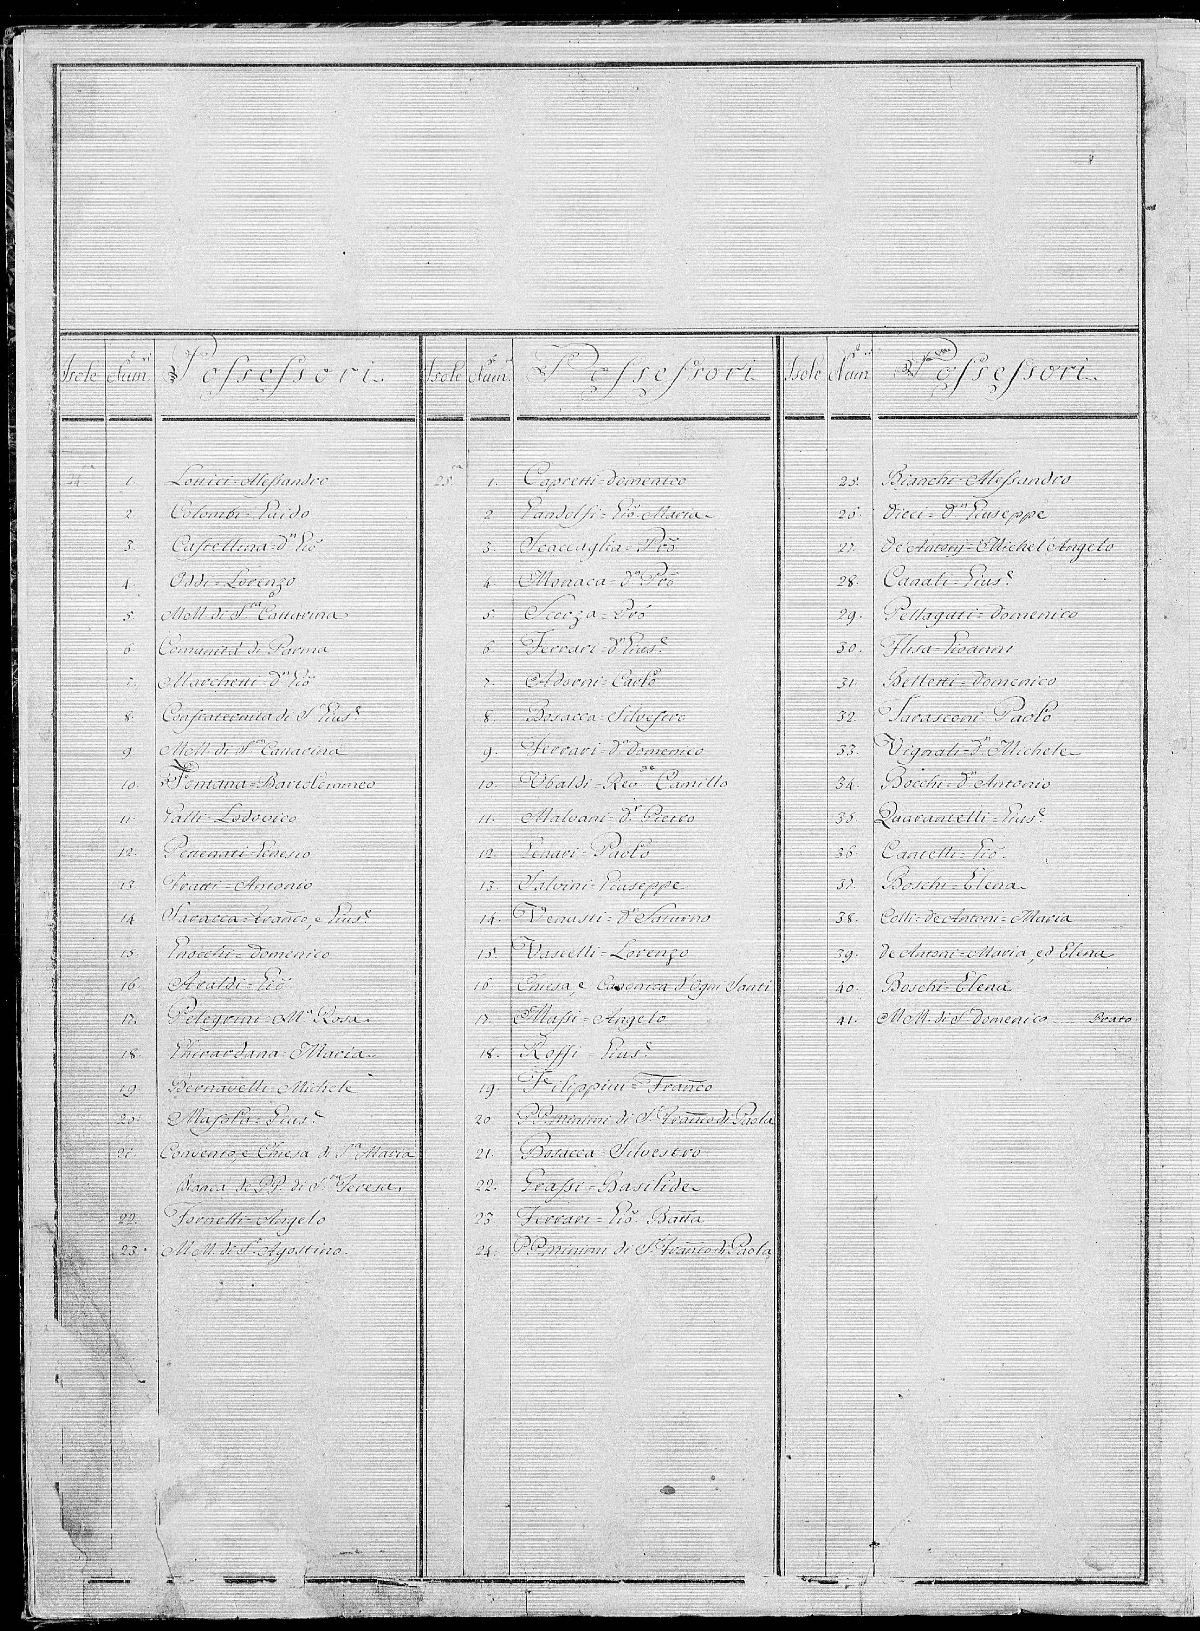 Isole Num.ri Possessori
24.ra 1. Lottici=Alessandro
2 Colombi=Guido
3. Castellina=D.n Gio
4. Oddi=Lorenzo
5. MM. di S.ra Cattarina
6. Comunità di Parma
7. Marchetti=D.n Gio
8. Confraternita di S. Gius.e
9. MM. di S.ra Cattarina
10. Fontana=Bartolommeo
11. Galli=Lodovico
12. Pettenati=Genesio
13. Fratti=Antonio
14. Saracca=Franco, e Gius.e
15. Gnocchi=Domenico
16. Araldi=Gio
17. Pelegrini=M.a Rosa.
18. Ghirardana=Maria
19. Bernarelli=Michele
20. Massola=Gius.e
21. Convento, e Chiesa di S.a Maria
Bianca de PP. di S.ra Teresa.
22. Fornelli=Angelo
23. MM. di S. Agostino.
Isole Num.ri Possessori
25.ra 1. Capretti=Domenico
2 Landolfi=Gio Maria
3. Scaccaglia=Pró
4. Monaca=D.n Pró
5. Scorza=Pró
6. Ferrari=D.n Gius.e
7. Adorni=Carlo
8. Bosacca=Silvestro
9. Ferrari=D.n Domenico
10. Ubaldi=Rev.de Camillo
11. Malvani=D.r Pietro
12. Genari=Paolo
13. Salvini=Giuseppe
14. Venusti=D.n Saturno
15. Vascelli=Lorenzo
16. Chiesa, e Canonica d'Ogni Santi
17. Massi=Angelo
18. Rossi=Gius.e
19. Filippini=Franco
20 P.P. minimi di S. Franco di Paola
21. Bosacca=Silvestro
22. Grassi=Basilide
23 Ferrari=Gio. Batta
24. P.P. minimi di S. Franco di Paola
Isole Num.ri Possessori
25. Bianchi=Alessandro
26. Dieci=D.n Giuseppe
27. De Antony=Michel'Angelo
28. Canali=Gius.e
29. Pellagatti=Domenico
30. Ilisa=Giovanni
31. Belletti=Domenico
32. Sarasconi Paolo
33. Vignali=D.n Michele
34. Bocchi=D.n Antonio
35. Quarantelli=Gius.e
36. Cantelli=Gio.
37. Boschi=Elena
38. Colli=de Antoni=Maria
39. de Antoni=Maria, ed Elena
40. Boschi=Elena
41. MM. di S. Domenico Prato